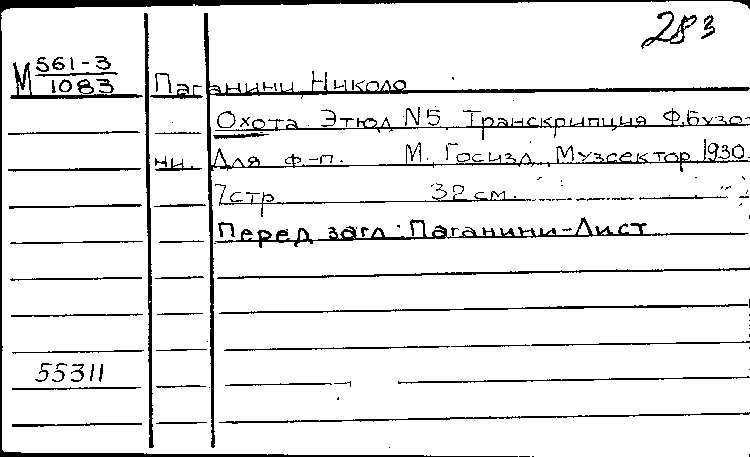 283
М 561-3
1083
Паганини, Николо
Охота. Этюд N5. Транскрипция Ф.Бузо-
ни. Для ф.-п. М., Госизд., Музсектор, 1930.
7 стр. 32 см.
Перед загл.: Паганини-Лист
55311